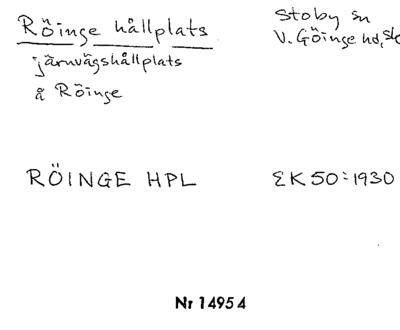 Röinge hållplats
Stoby sn
V. Göinge hd,
järnvägshållplats
å Röinge
RÖINGE HPL
EK50:1930
Nr 14954